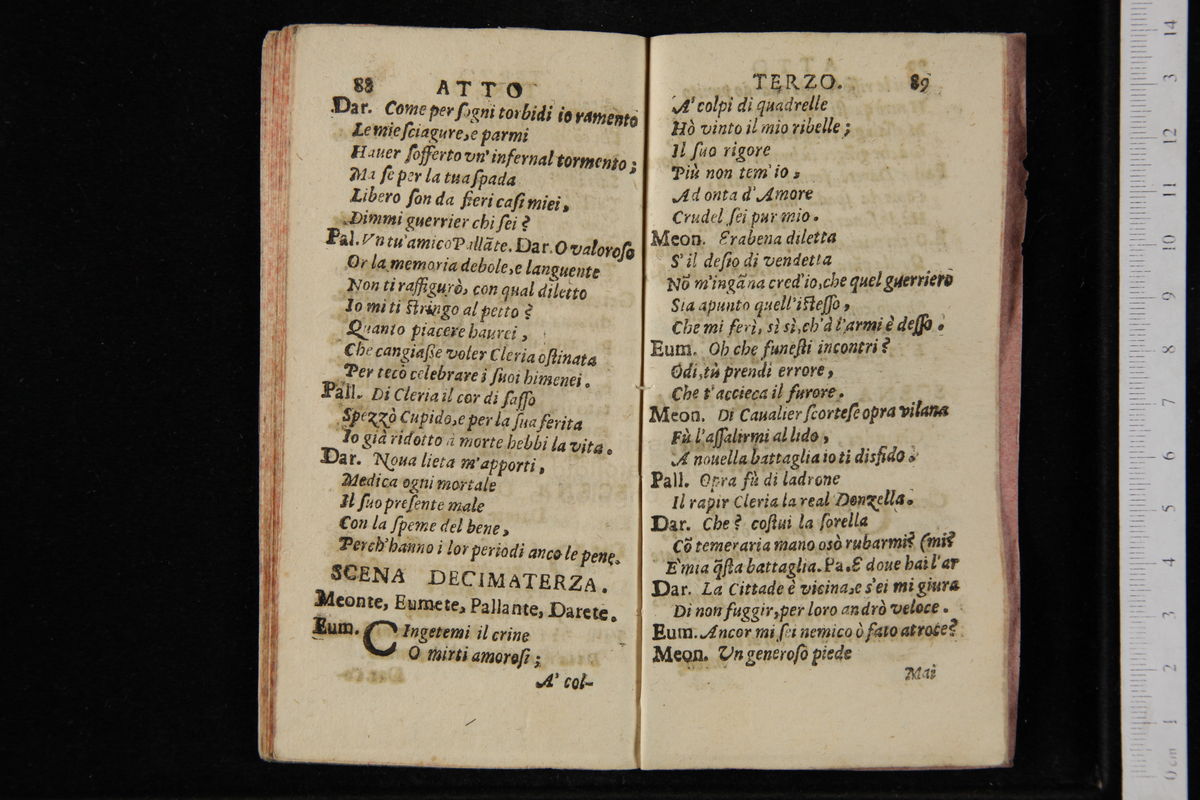 88 ATTO
Dar. Come per ſogni torbidi io ramento
Le mie ſciagure, e parmi
Hauer ſofferto vn' infernal tormento;
Ma ſe per la tua ſpada
Libero ſon da fieri caſi miei,
Dimmi guerrier chi ſei?
Pal. Vn tu' amico Pallãte. Dar. O valoroſo
Or la memoria debole, e languente
Non ti raffigurò, con qual diletto
Io mi ti ſtringo al petto?
Quanto piacere haurei,
Che cangiaſſe voler Cleria oſtinata
Per teco celebrare i ſuoi himenei.
Pall. Di Cleria il cor di ſaſſo
Spezzò Cupido, e per la ſua ferita
Io già ridotto à morte hebbi la vita.
Dar. Noua lieta m'apporti,
Medica ogni mortale
Il ſuo preſente male
Con la ſpeme del bene,
Perch' hanno i lor periodi anco le pene.
SCENA DECIMATERZA.
Meonte, Eumete, Pallante, Darete.
Eum. CIngetemi il crine
O mirti amoroſi;
A' col-
TERZO. 89
A' colpi di quadrelle
Hò vinto il mio ribelle;
Il ſuo rigore
Più non tem' io,
Ad onta d'Amore
Crudel ſei pur mio.
Meon. Era bena diletta
S' il deſio di vendetta
Nõ m'ingãna cred'io, che quel guerriero
Sia apunto quell'iſteſſo,
Che mi ferì, sì sì, ch'à l'armi è deſſo.
Eum. Oh che funeſti incontri?
Odi, tù prendi errore,
Che t'accieca il furore.
Meon. Di Caualier ſcorteſe opra vilana
Fù l'aſſalirmi al lido,
A nouella battaglia io ti disfido.
Pall. Opra fù di ladrone
Il rapir Cleria la real Donzella.
Dar. Che? coſtui la ſorella
Cõ temeraria mano osò rubarmi? (mi?
E' mia q̃ſta battaglia. Pa. E doue hai l'ar
Dar. La Cittade è vicina, e s'ei mi giura
Di non fuggir, per loro andrò veloce.
Eum. Ancor mi ſei nemico ò fato atroce?
Meon. Un generoſo piede
Mai